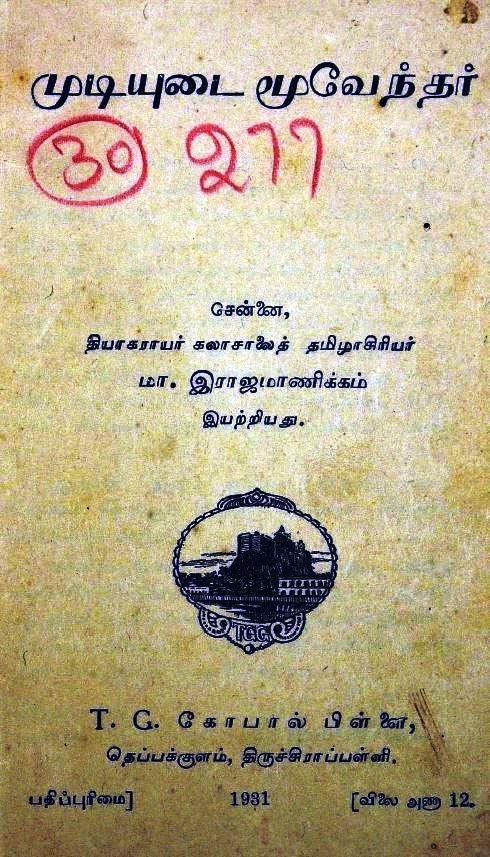 முடியுடை மூவேந்தர்
30 277
சென்னை,
தியாகராயர் கலாசாலைத் தமிழாசிரியர்
மா. இராஜமாணிக்கம்
இயற்றியது.
TGG
T. G. கோபால் பிள்ளை,
தெப்பக்குளம், திருச்சிராப்பள்ளி.
பதிப்புரிமை] 1931 [விலை அணா 12.